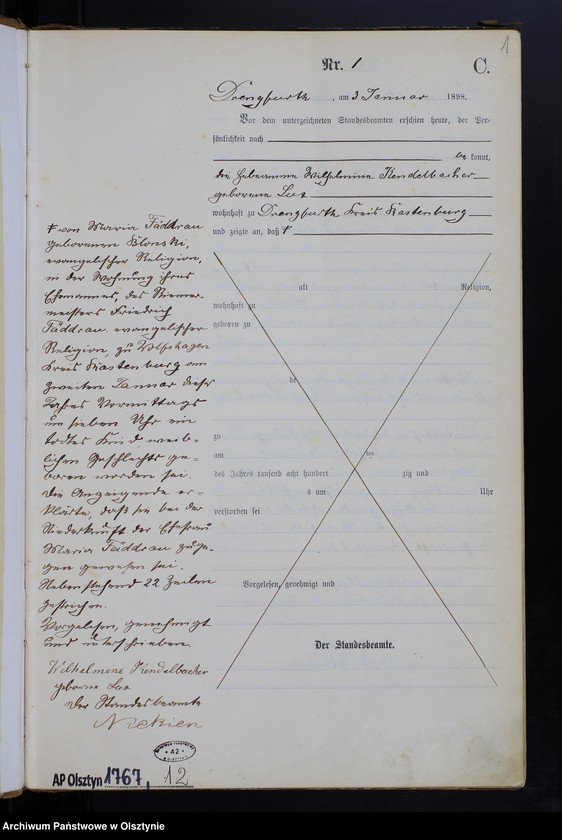 1
Nr. 1
C.
Drengfurth, am 3 Januar 1898.
Vor dem unterzeichneten Standesbeamten erschien heute, der Per-
sönlichkeit nach
be kannt,
die Hebeamme Wilhelmine Kendelbacher
geborene
wohnhaft zu Drengfurth Kreis Rastenburg
und zeigte an, daß
alt Religion,
wohnhaft zu
geboren zu
de
zu
am
des Jahres tausend acht hundert zig und
s um Uhr
verstorben sei
Vorgelesen, genehmigt und
Der Standesbeamte.
von Maria Fäddrau
geborenen
evangelischer Religion,
in der Wohnung ihres
Ehemannes, des
meisters Friedrich
Fäddrau, evangelischer
Religion, zu Wolfshagen
Kreis Rastenburg am
zweiten Januar dieses
Jahres Vormittags
um sieben Uhr ein
todtes Kind weib-
lichen Geschlechts ge-
boren worden sei.
Die Anzeigende er-
klärte, daß sie bei der
Niederkunft der Ehefrau
Maria Fäddrau zuge-
gen gewesen sei.
Nebenstehend 22 Zeilen
gestrichen.
Vorgelesen, genehmigt
und unterschrieben.
Wilhelmine Kendelbacher
geborne
Der Standesbeamte
AP Olsztyn 1767, 12
A2
Archiwum Państwowe w Olsztynie